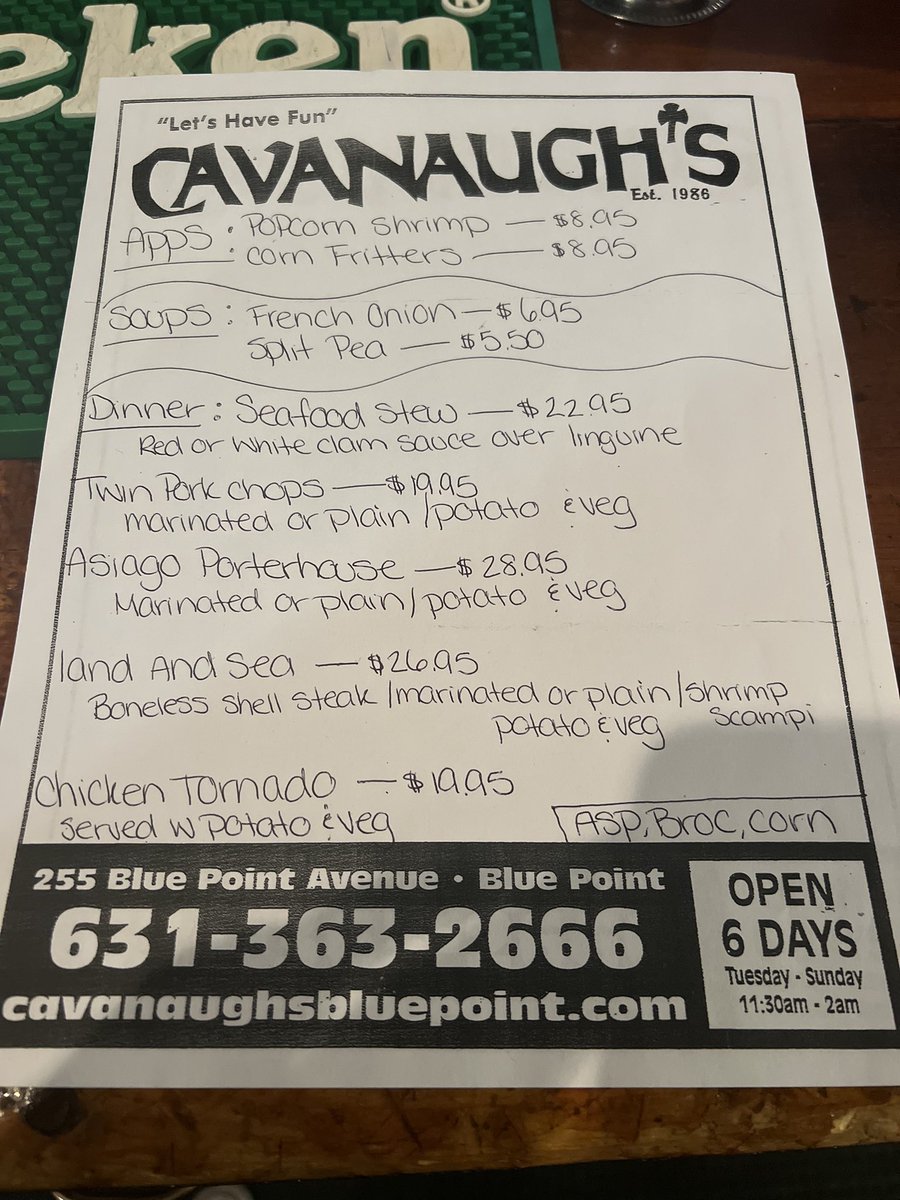 eken®
"Let's Have Fun"
CAVANAUGH'S
Est. 1986
Apps : Popcorn shrimp — $8.95
: corn Fritters — $8.95
Soups : French Onion — $6.95
Split Pea — $5.50
Dinner : Seafood Stew — $22.95
Red or white clam sauce over linguine
Twin Pork chops — $19.95
marinated or plain / potato & veg
Asiago Porterhouse — $28.95
Marinated or plain / potato & veg
land And Sea — $26.95
Boneless shell steak / marinated or plain / shrimp
potato & veg Scampi
Chicken Tornado — $19.95
served w potato & veg
ASP, Broc, corn
255 Blue Point Avenue • Blue Point
631-363-2666
cavanaughsbluepoint.com
OPEN
6 DAYS
Tuesday - Sunday
11:30am - 2am